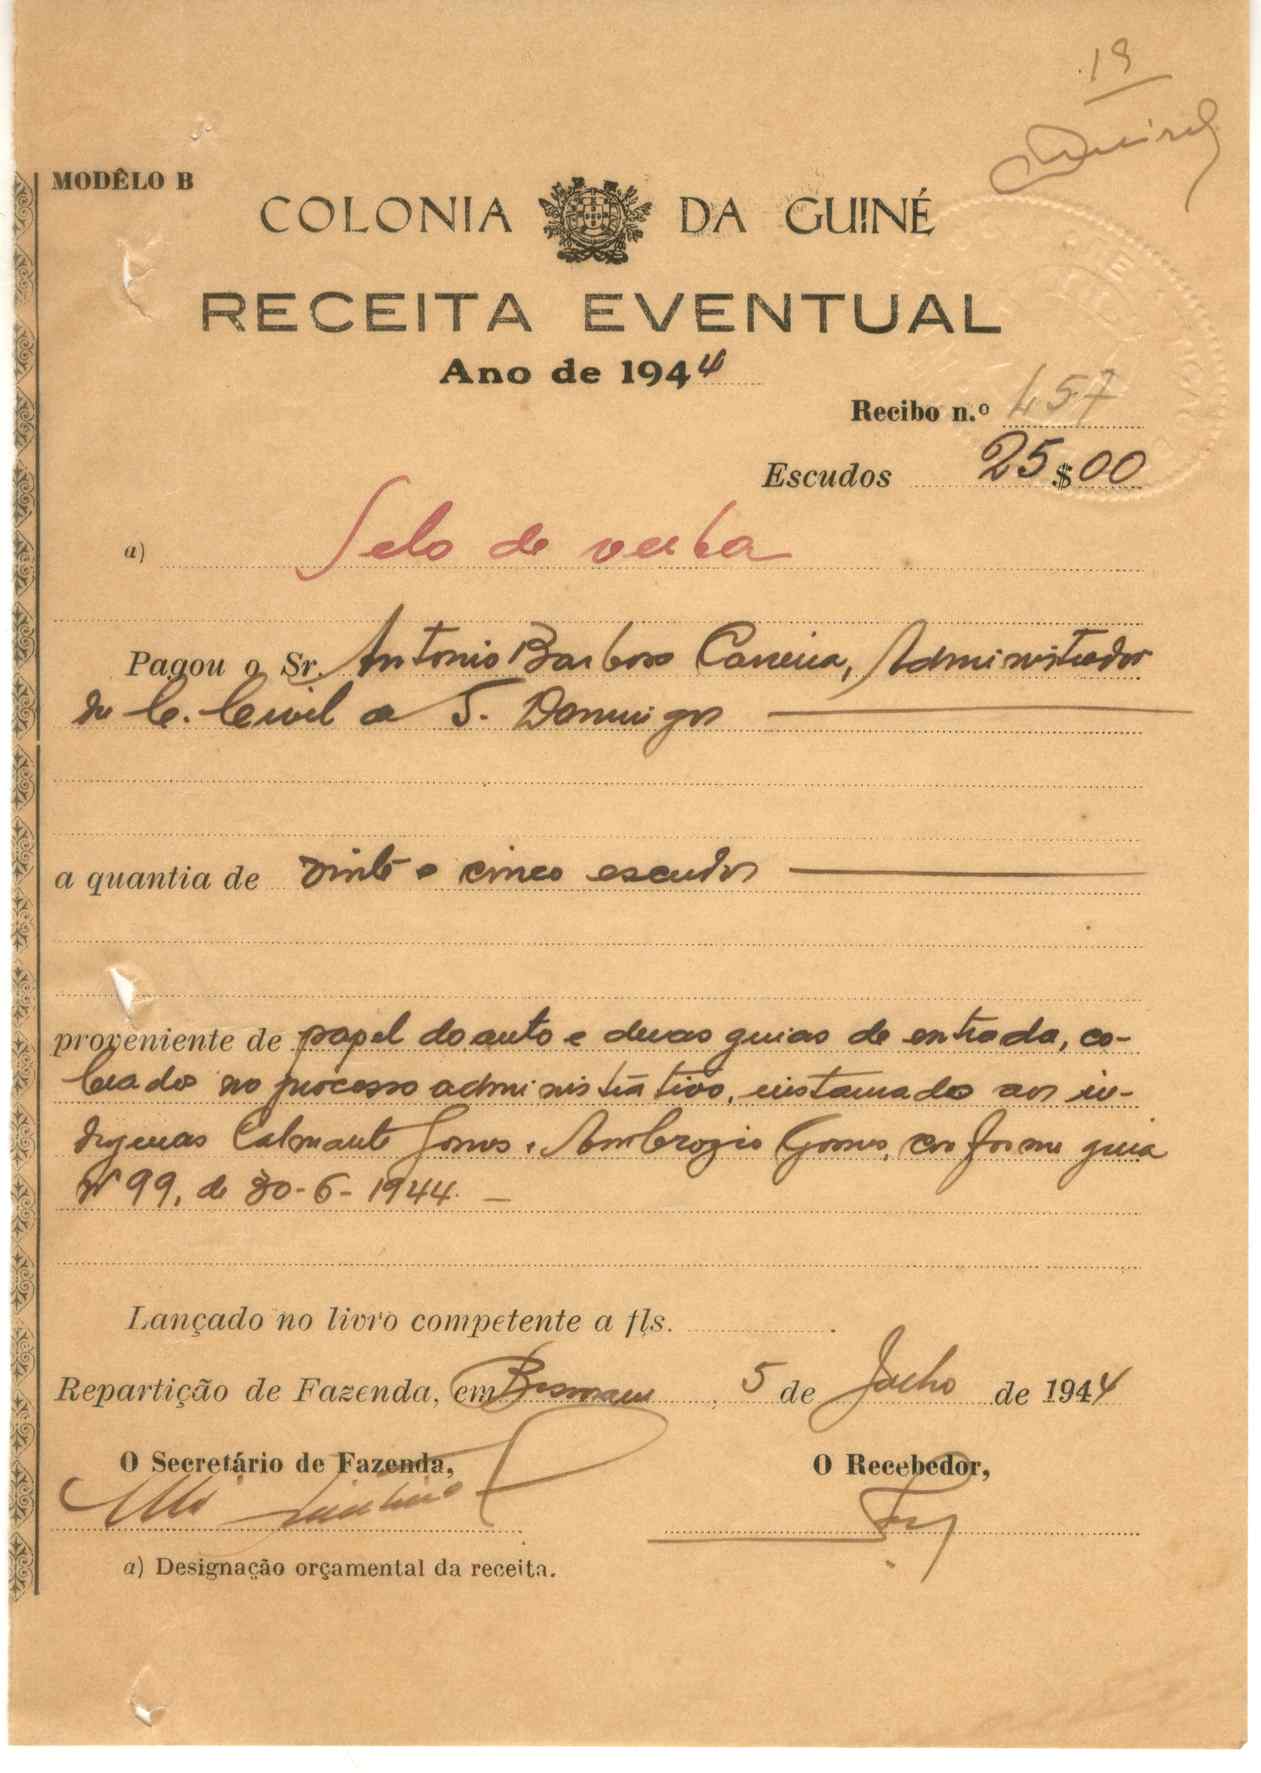 19
MODÊLO B
COLONIA DA GUINÉ
RECEITA EVENTUAL
Ano de 1944
Recibo n.º 457
Escudos 25$00
a) Selo de verba
Pagou o Sr. Antonio Barbosa Carreira, Administrador
de C. Civil de S. Domingos
a quantia de vinte e cinco escudos
proveniente de papel do auto e duas guias de entrada, co-
brados no processo administrativo, instaurado aos in-
digenas Calmante Gomes e Ambrozio Gomes, conforme guia
Nº 99, de 30-6-1944.
Lançado no livro competente a fls. .
Repartição de Fazenda, em , 5 de Julho de 1944
O Secretário de Fazenda,
O Recebedor,
a) Designação orçamental da receita.